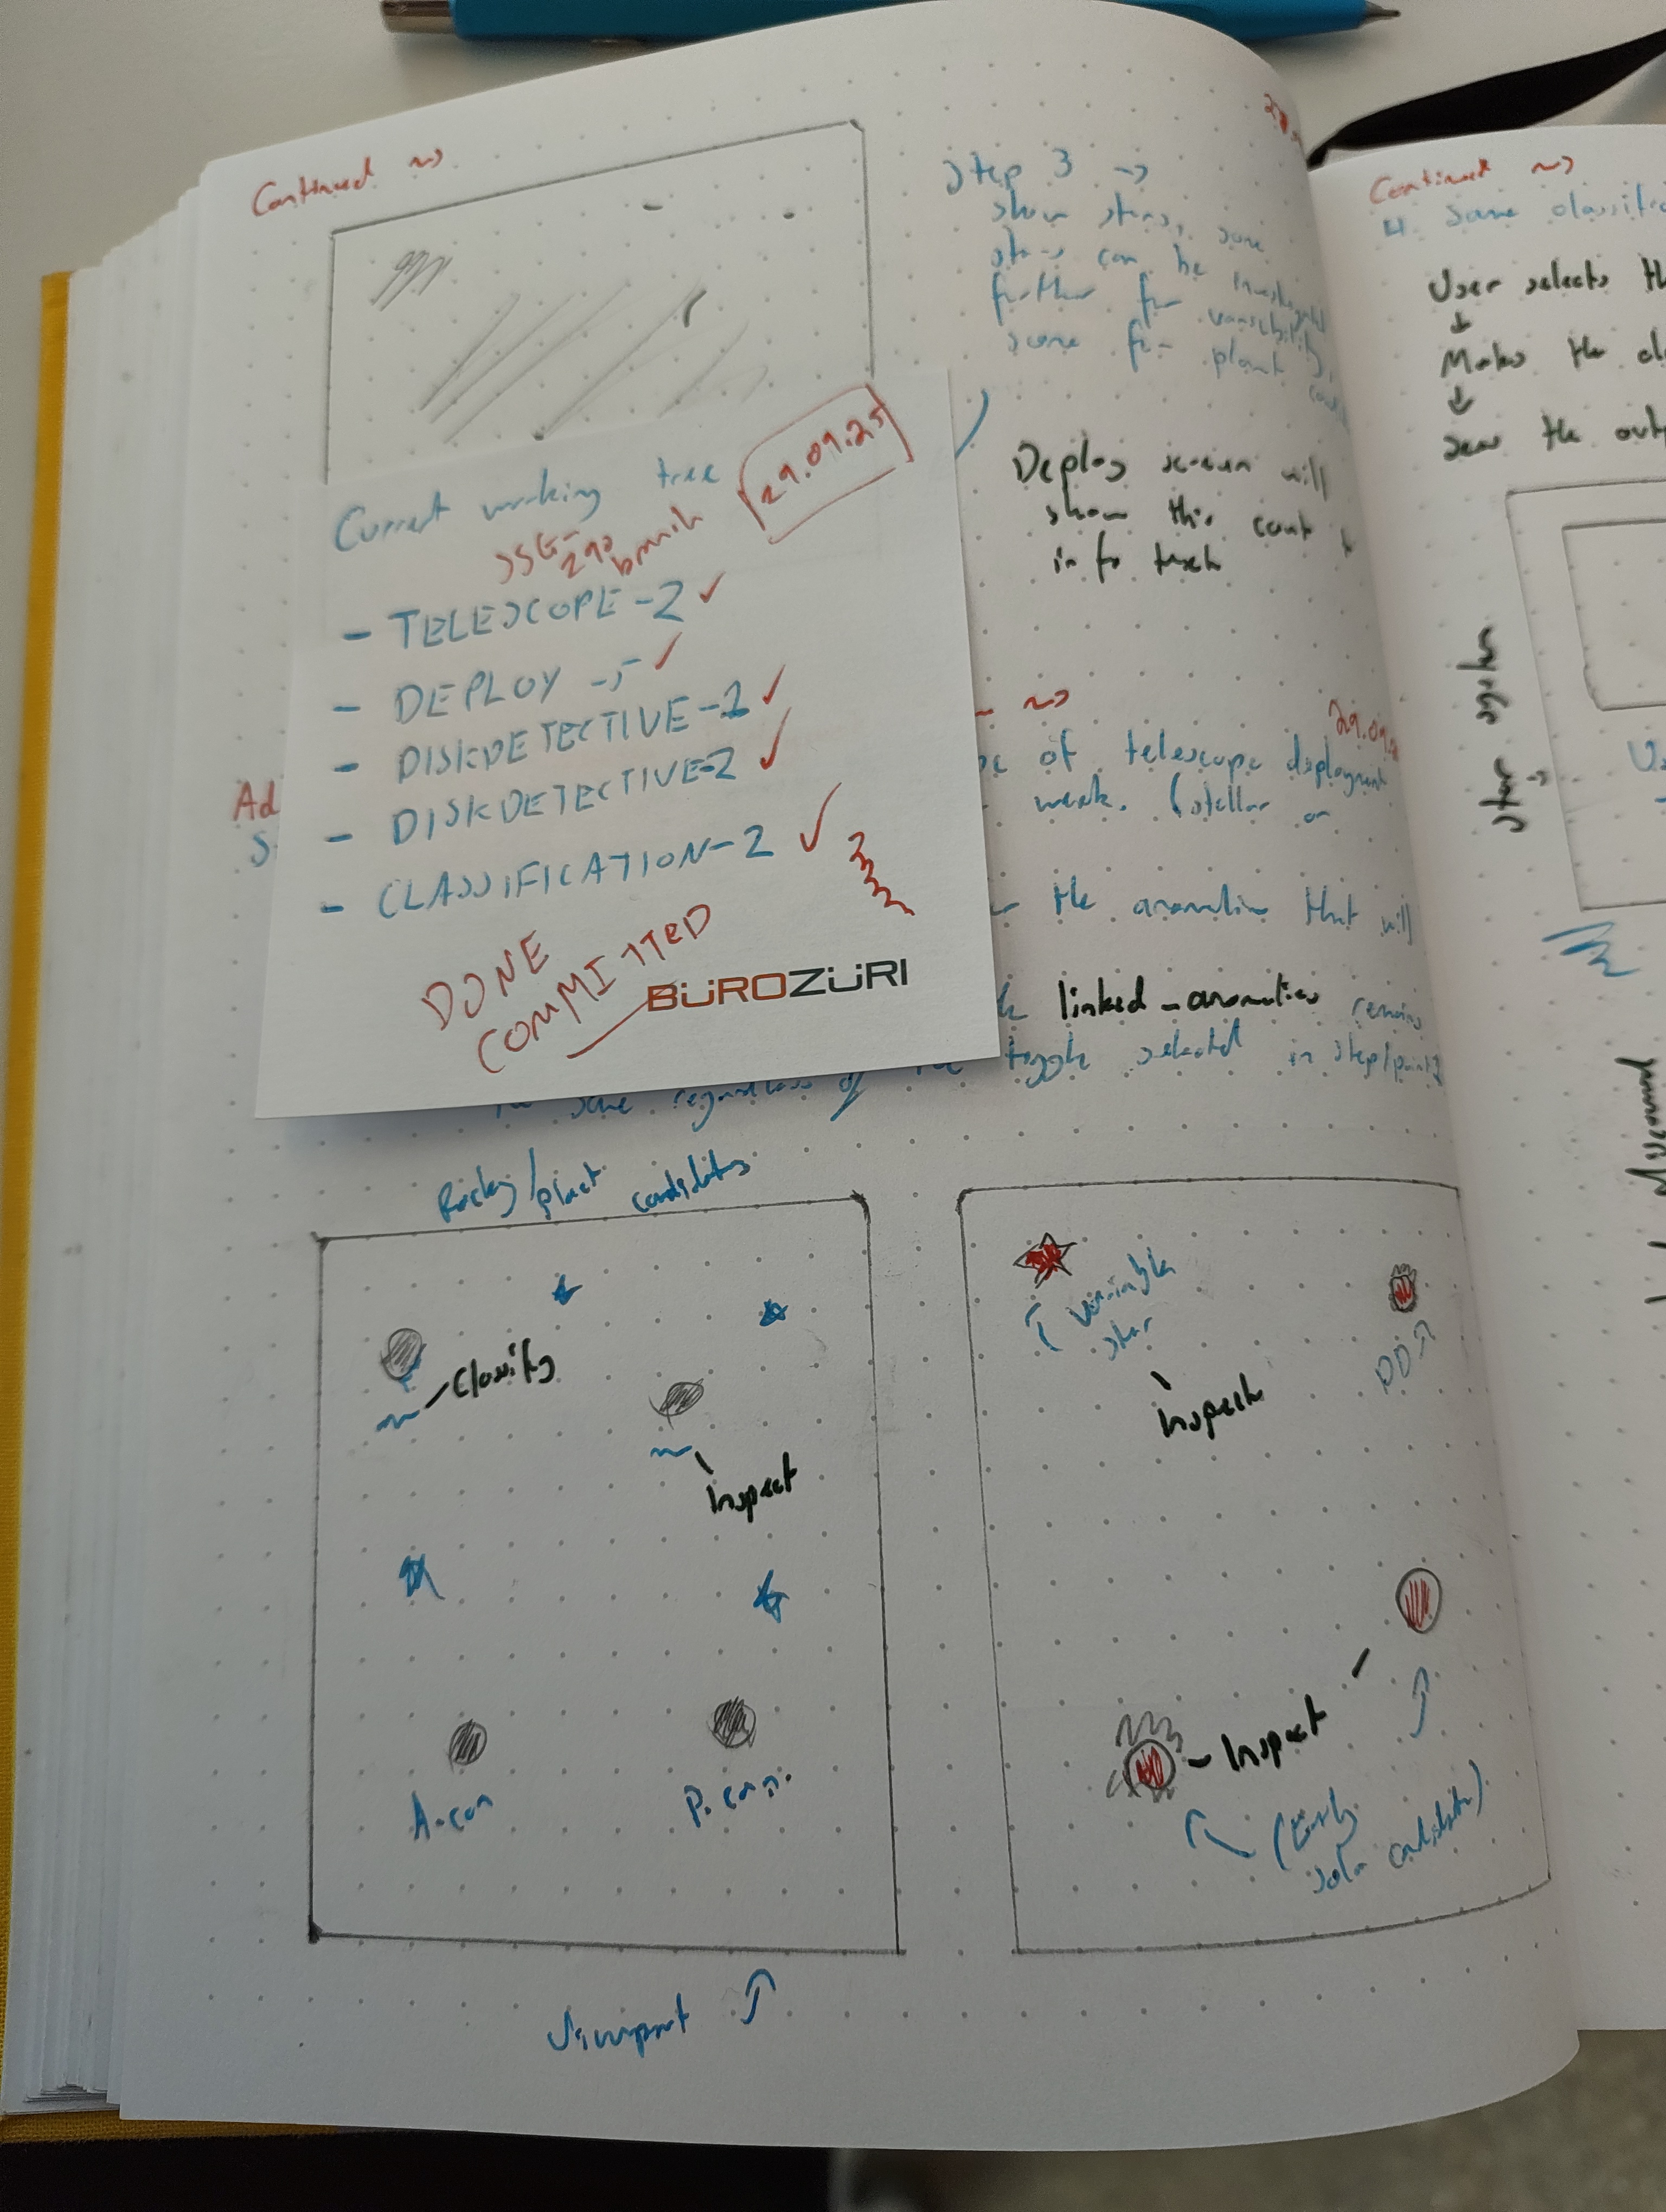 Continued ~>
Step 3 ->
show stars, some
stars can be investigated
further for variability,
some for planet
Deploy screen will
show this count
info too
Current working tree
29.09.25
SSG-290
branch
- TELESCOPE-2 ✓
- DEPLOY-5 ✓
- DISKDETECTIVE-1 ✓
- DISKDETECTIVE-2 ✓
- CLASSIFICATION-2 ✓
DONE
COMMITTED
BÜROZÜRI
Ad
29.09.
of telescope deployment
week. (stellar or
the anomalies that will
linked-anomalies remains
same regardless of the toggle selected in step/point
Rocky/planet candidates
Classify
Inspect
A.can
P.can.
Variable
star
Inspect
DD
Inspect
(Early
solar candidate)
Viewport
Continued ~>
4. Some classific
User selects th
Makes the cl
Sees the outp
Star system